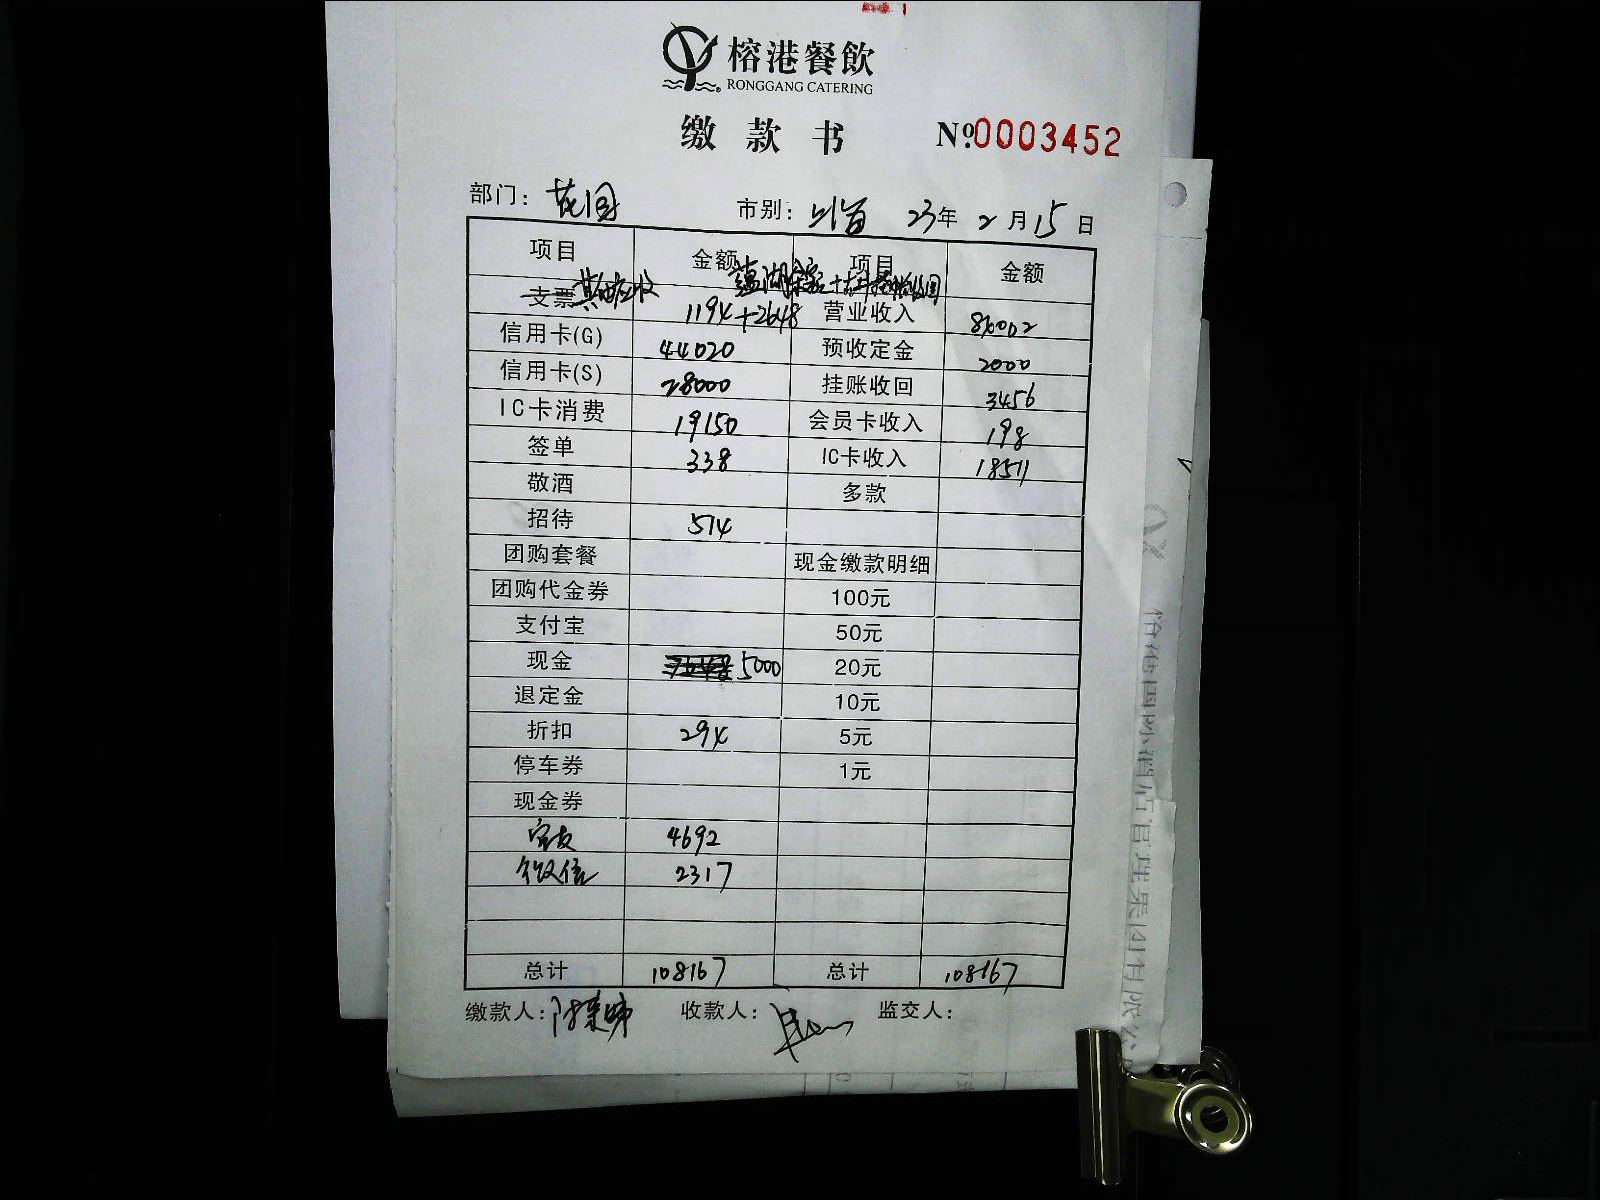 榕港餐飲
RONGGANG CATERING
缴款书 Nº:0003452
部门：花园 市别：23年2月15日
项目 金额 项目 金额
支票 其他应收 1194+2648 营业收入 84002
信用卡(G) 44020 预收定金 2000
信用卡(S) 28000 挂账收回 3456
IC卡消费 19150 会员卡收入 198
签单 338 IC卡收入 18511
敬酒 多款
招待 514
团购套餐 现金缴款明细
团购代金券 100元
支付宝 50元
现金 5000 20元
退定金 10元
折扣 294 5元
停车券 1元
现金券
4692
微信 2317
总计 108167 总计 108167
缴款人： 收款人： 监交人：